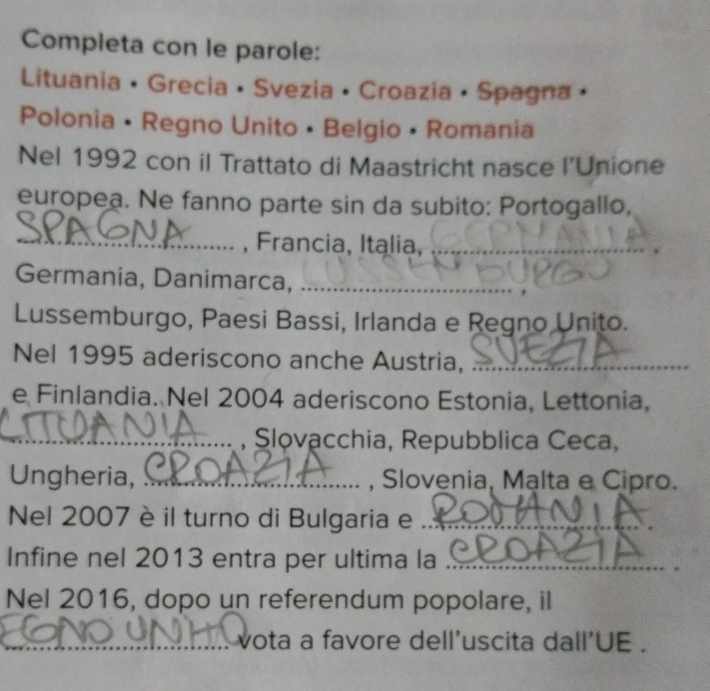 Completa con le parole:
Lituania • Grecia • Svezia • Croazia • Spagna •
Polonia • Regno Unito • Belgio • Romania
Nel 1992 con il Trattato di Maastricht nasce l'Unione
europea. Ne fanno parte sin da subito: Portogallo,
SPAGNA , Francia, Italia, GERMANIA ,
Germania, Danimarca, LUSSEMBURGO ,
Lussemburgo, Paesi Bassi, Irlanda e Regno Unito.
Nel 1995 aderiscono anche Austria, SVEZIA
e Finlandia. Nel 2004 aderiscono Estonia, Lettonia,
LITUANIA , Slovacchia, Repubblica Ceca,
Ungheria, CROAZIA , Slovenia, Malta e Cipro.
Nel 2007 è il turno di Bulgaria e ROMANIA .
Infine nel 2013 entra per ultima la CROAZIA .
Nel 2016, dopo un referendum popolare, il
EGNO UNITO vota a favore dell'uscita dall'UE .